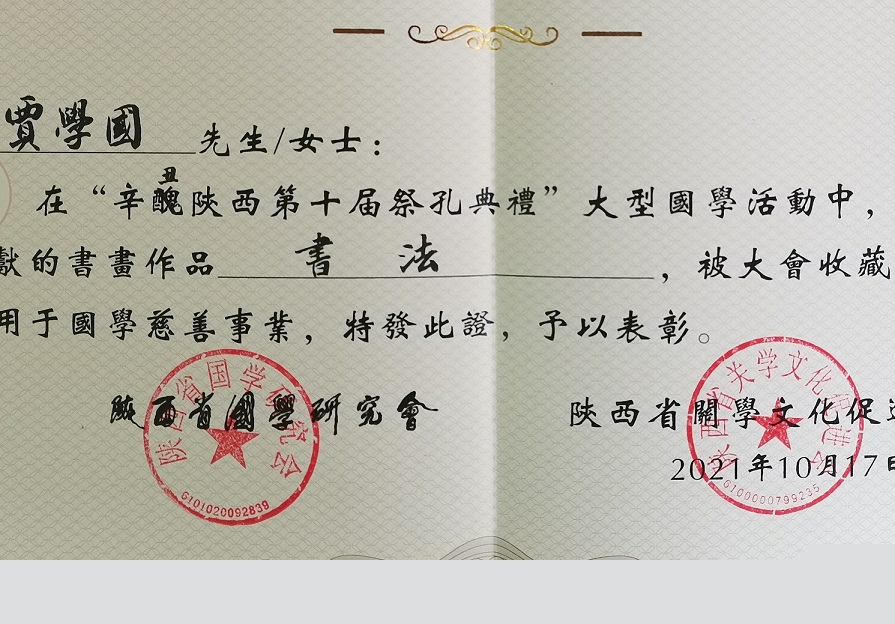 賈學國 先生/女士：
在“辛醜丑陝西第十届祭孔典禮”大型國學活動中，
獻的書畫作品 書 法 ，被大會收藏
用于國學慈善事業，特發此證，予以表彰。
陝西省國學研究會 陝西省關學文化促進
2021年10月17日
陕西省国学研究会
6101020092839
陕西省关学文化促进会
6100000799235